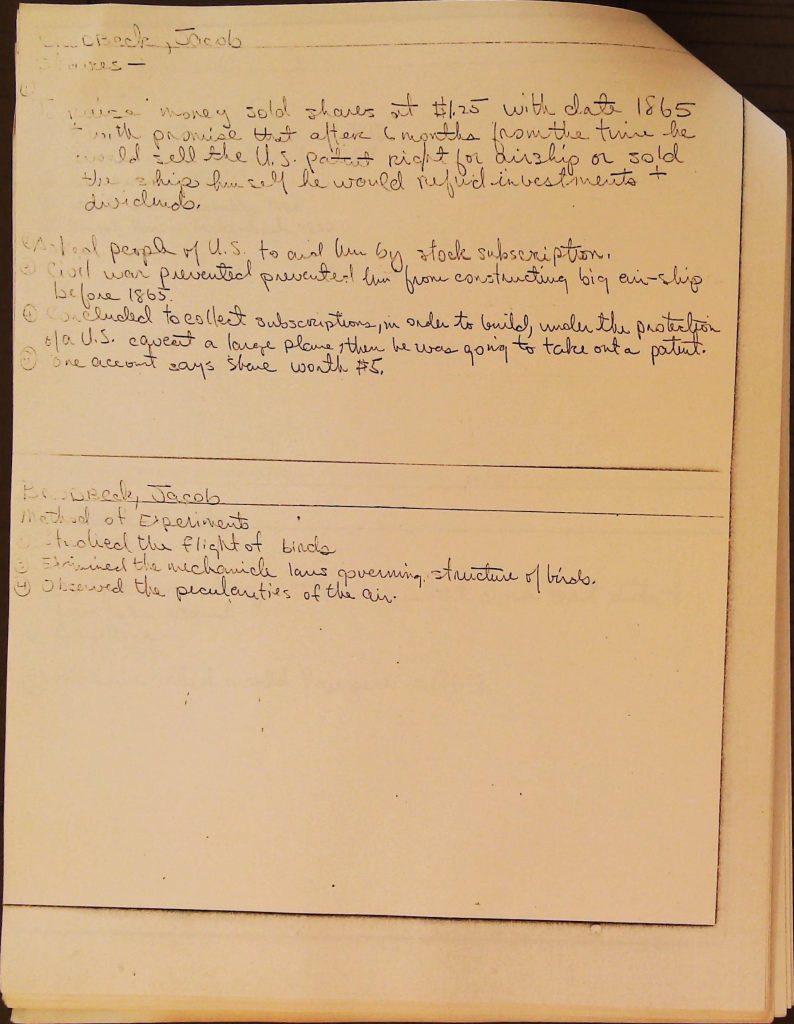 Brodbeck, Jacob
Shares —
①
To raise money sold shares at $1.25 with date 1865
+ with promise that after 6 months from the time he
would sell the U.S. patent right for airship or sold
the ship himself he would refud investments +
dividends.
② Asked people of U.S. to aid him by stock subscription.
③ Civil war prevented prevented him from constructing big air-ship
before 1865.
④ Concluded to collect subscriptions, in order to build, under the protection
of a U.S. caveat a large plane, then he was going to take out a patent.
⑤ One account says share worth $5.
Brodbeck, Jacob
Method of Experiments
Studied the flight of birds
③ Examined the mechanicle laws governing structure of birds.
④ Observed the pecularities of the air.